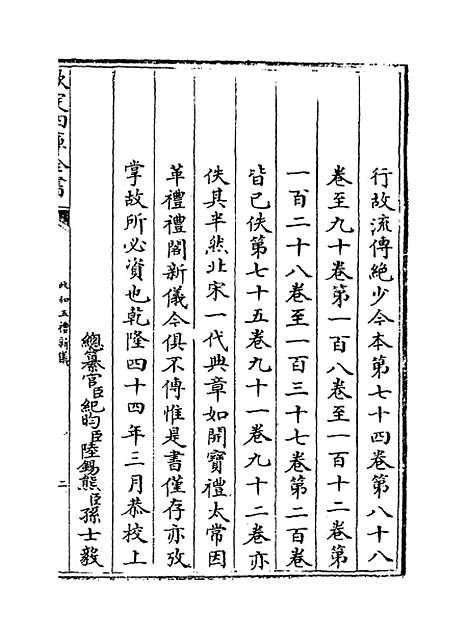 行故流傳絶少今本第七十四卷第八十八
卷至九十卷第一百八卷至一百十二卷第
一百二十八卷至一百三十七卷第二百卷
皆已佚第七十五卷九十一卷九十二卷亦
佚其半然北宋一代典章如開寶禮太常因
革禮禮閣新儀今俱不傳惟是書僅存亦攷
掌故所必資也乾隆四十四年三月恭校上
總纂官臣紀昀臣陸錫熊臣孫士毅
欽定四庫全書
政和五禮新儀
二